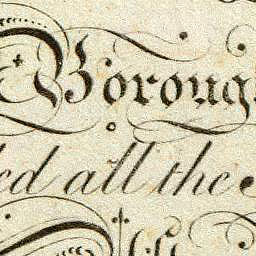 Boroug
ed all the